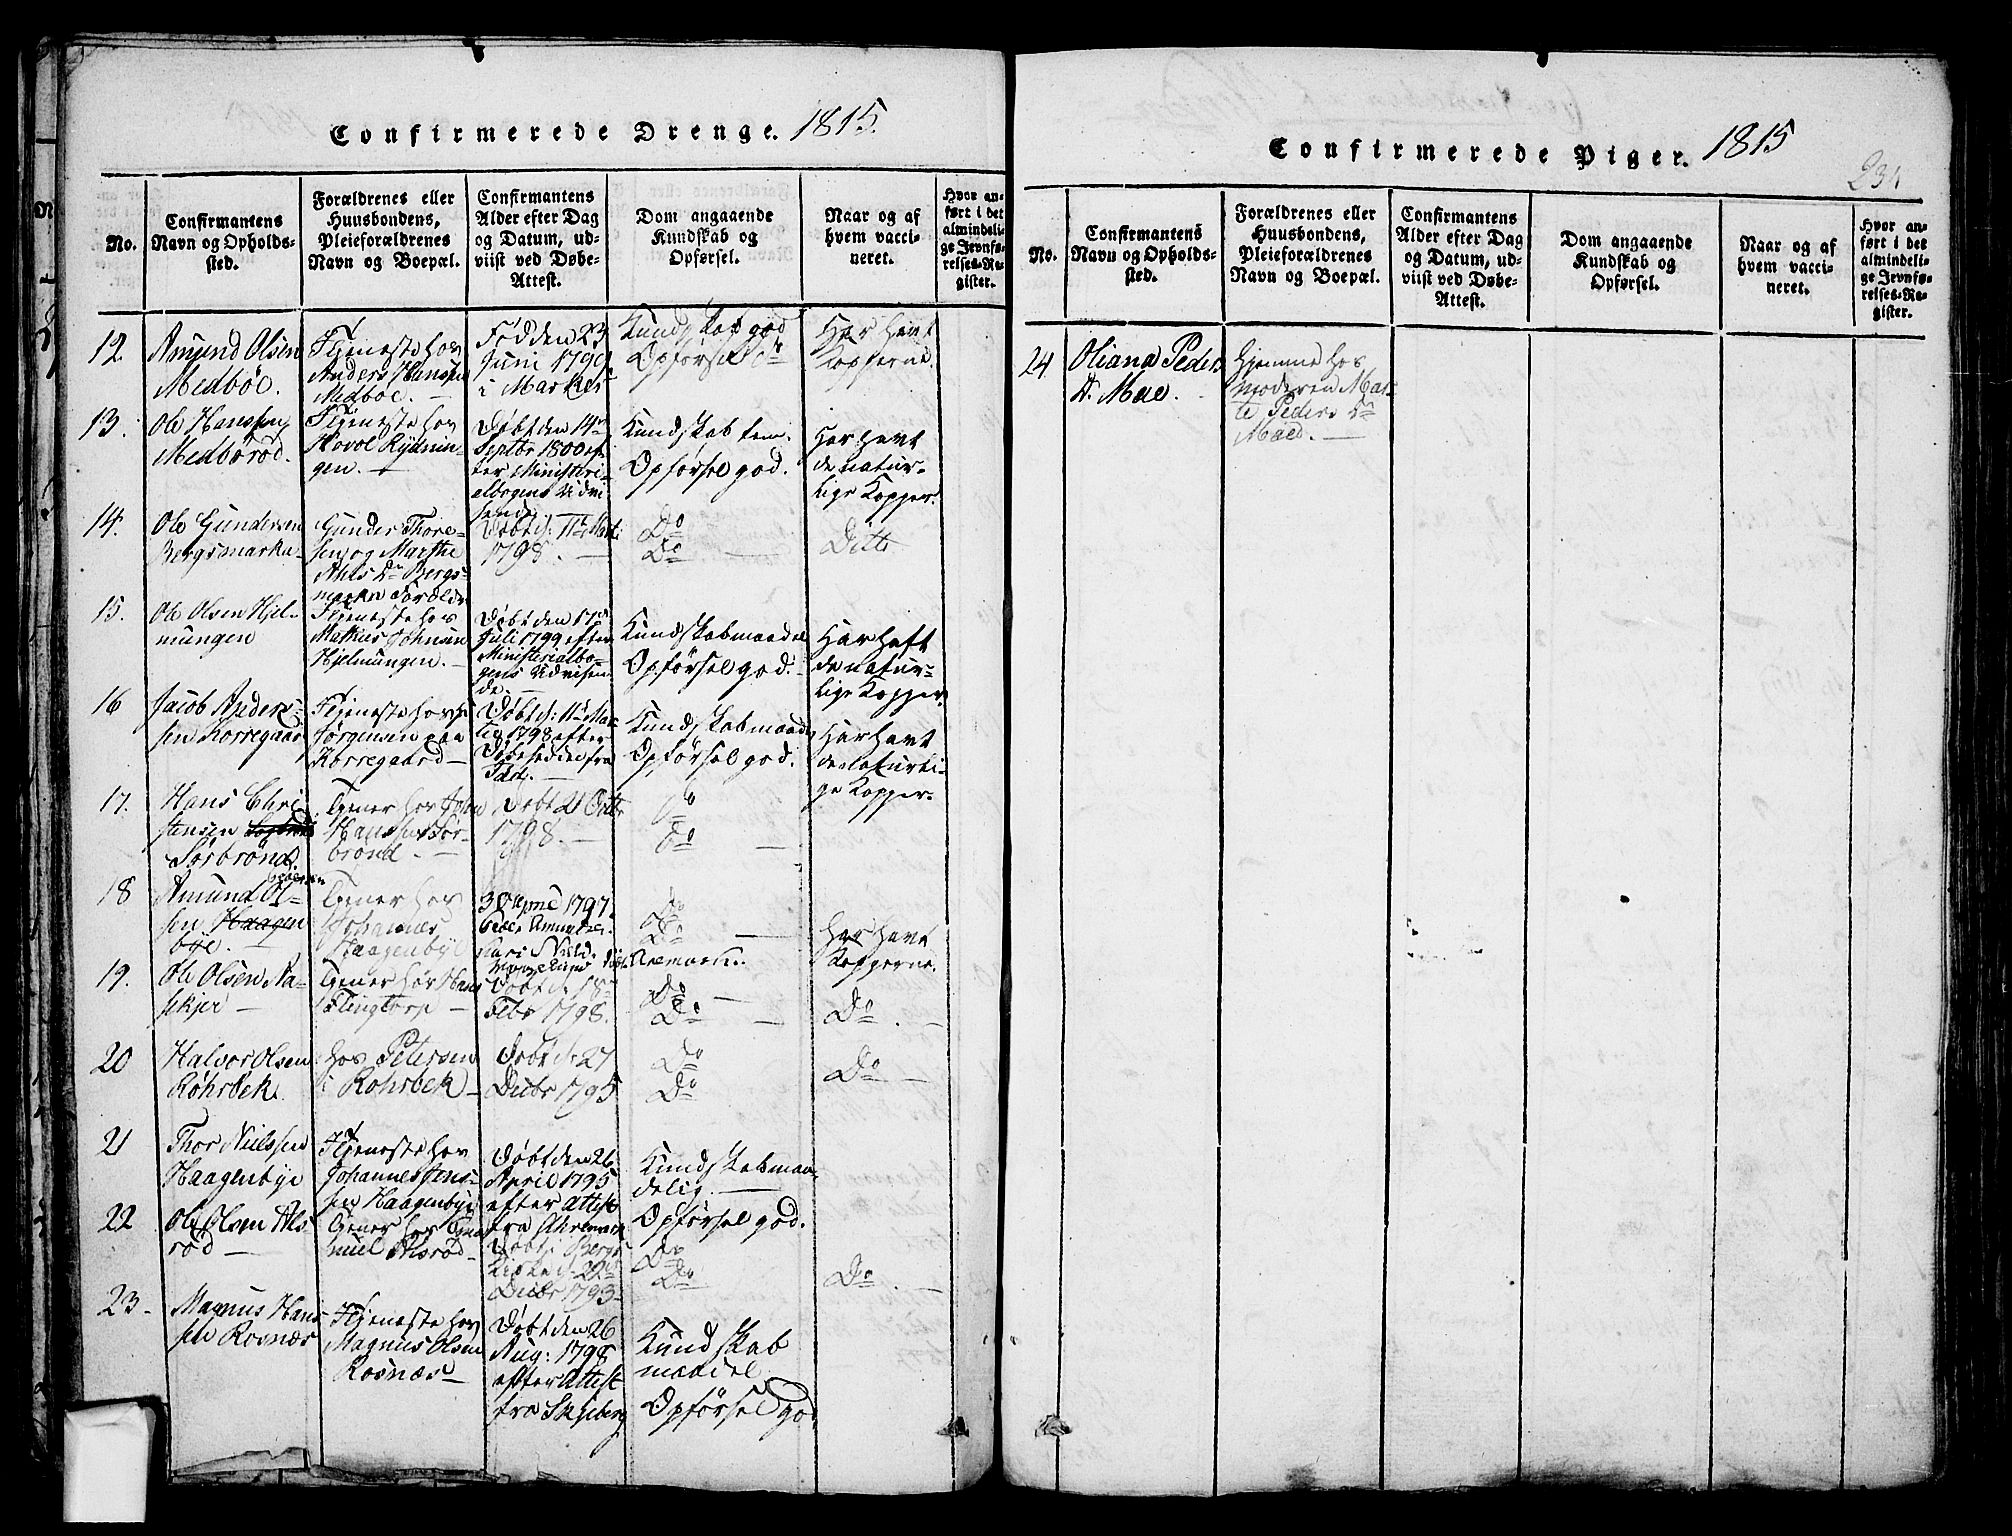 Confirmerede Drenge. 1815.
No.
Confirmantens
Navn og Opholds-
sted.
Forældrenes eller
Huusbondens,
Pleieforældrenes
Navn og Boepæl.
Confirmantens
Alder efter Dag
og Datum, ud-
viist ved Døbe-
Attest.
Dom angaaende
Kundskab og
Opførsel.
Naar og af
hvem vacci-
neret.
Hvor an-
ført i det
almindeli-
ge Jevnfø-
relses-Re-
gister.
12.
Amund Olsen
Medböe.
Tjeneste hos
Anders Hansen
Medböe. —
Född den 23
Juni 1799
i Marker
Kundskab god
Opförsel do
Har havt
Kopperne.
13.
Ole Hanssen
Medböröd.
Tjeneste hos
Hovol Rydnin-
gen. —
Döbt den 14de
Septbr 1800 ef-
ter Ministeri-
elbogens Udvi-
sende
Kundskab tem.
Opförsel god.
Har havt
de natur-
lige Kopper.
14.
Ole Gundersen
Bergsmarka
Gunder Thore-
sen og Marthe
Ahls Dr Bergs-
marka Forældre
Döbt d: 11te Marti
1798. —
Do
Do —
Ditto
15.
Ole Olsen Hjel-
mungen
Tjeneste hos
Mathias Johnsen
Hjelmungen. —
Döbt den 17de
Juli 1799 efter
Ministerialbo-
gens Udvisen-
de. —
Kundskab maadel
Opförsel god. -
Har haft
de natur-
lige Kopper.
16
Jacob Ander-
sen Korregaar
Tjeneste hos
Jörgensen paa
Korregaard —
Döbt d: 11te Mar-
tii 1798 efter
Döbeseddel fra
Kundskab maadl
Opförsel god.
Har havt
de naturli-
ge Kopper.
17.
Hans Chri-
stensen
Sörbrönd.
Tjener hos John
Hanssen Sör-
brönd. —
Döbt 21 Octbr
1798. —
Do
Do —
18
Amund Ol-
sen Haagen
bye. —
Pedersen
Tjener hos
Johannes
Haagenbye
1797.
Peder Amundsen
Kari
Do
Do —
Har havt
Kopperne.
19.
Ole Olsen Na-
skjer —
Tjener hos Hans
Flingtorp —
Döbt d. 18de
Febr 1798.
Do —
Do —
Do. —
20
Halvor Olsen
Röhrbek.
hos Petersen
i Rohrbek —
Döbt d: 27
Decbr 1795
Do
Do
Do —
21
Thor Nielssen
Haagenbye
Tjeneste hos
Johannes Jens-
sen Haagenbye
Döbt den 26
April 1795
efter Attest
fra
Kundskab maa-
delig. —
Opförsel god.
22
Ole Olsen Als-
röd —
Tjener hos
Alsröd —
Döbt i Bergs
Kirke d. 22de
Decbr 1793
Do
Do
Do. —
23 -
Magnus Hans
sen Rosnæs
Tjeneste hos
Magnus Olsen
Rosnæs —
Döbt den 26
Aug: 1798
efter Attest
fra Skjeberg
Kundskab
maadel
Opförsel god
Confirmerede Piger. 1815
231
No.
Confirmantens
Navn og Opholds-
sted.
Forældrenes eller
Huusbondens,
Pleieforældrenes
Navn og Boepæl.
Confirmantens
Alder efter Dag
og Datum, ud-
viist ved Døbe-
Attest.
Dom angaaende
Kundskab og
Opførsel.
Naar og af
hvem vacci-
neret.
Hvor an-
ført i det
almindeli-
ge Jevnfø-
relses-Re-
gister.
24
Oliana Peders
Dr. Mæe.
Hjemme hos
moderen Mar-
te Peders Dr
Mæe. —